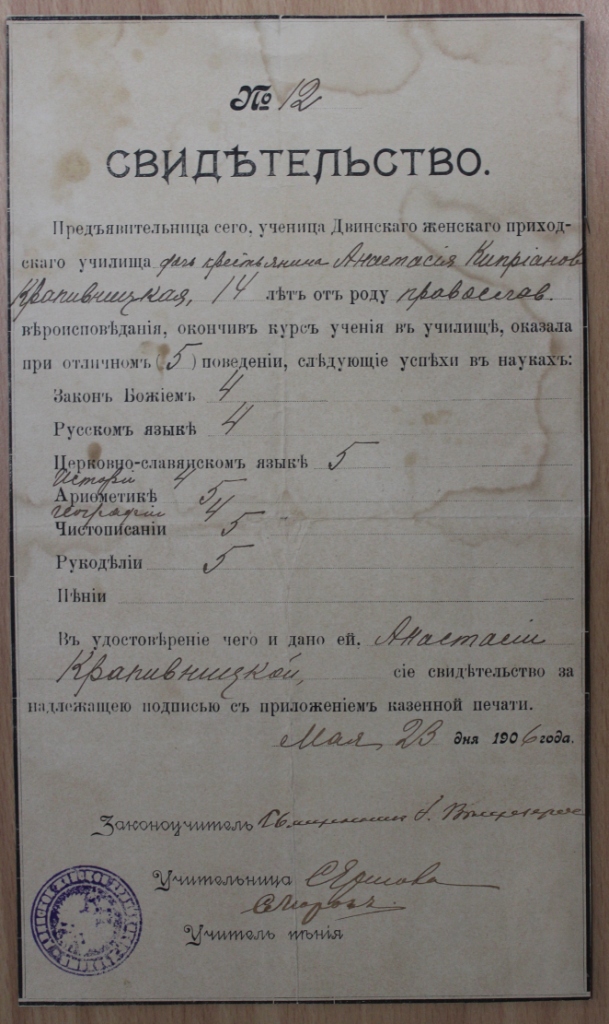 № 12
СВИДѢТЕЛЬСТВО.
Предъявительница сего, ученица Двинскаго женскаго приход-
скаго училища дочь крестьянина Анастасія Кипріанов
Крапивницкая, 14 лѣтъ отъ роду православ.
вѣроисповѣданія, окончив курсъ ученія въ училищѣ, оказала
при отличномъ (5) поведеніи, слѣдующіе успѣхи въ наукахъ:
Законъ Божіемъ 4
Русскомъ языкѣ 4
Церковно-славянскомъ языкѣ 5
Исторіи 4
Ариѳметикѣ 5
Географіи 4
Чистописаніи 5
Рукодѣліи 5
Пѣніи
Въ удостовѣреніе чего и дано ей, Анастасіи
Крапивницкой, сіе свидѣтельство за
надлежащею подписью съ приложеніемъ казенной печати.
Мая 23 дня 1906 года.
Законоучитель
Учительница С Ершова
Учитель пѣнія